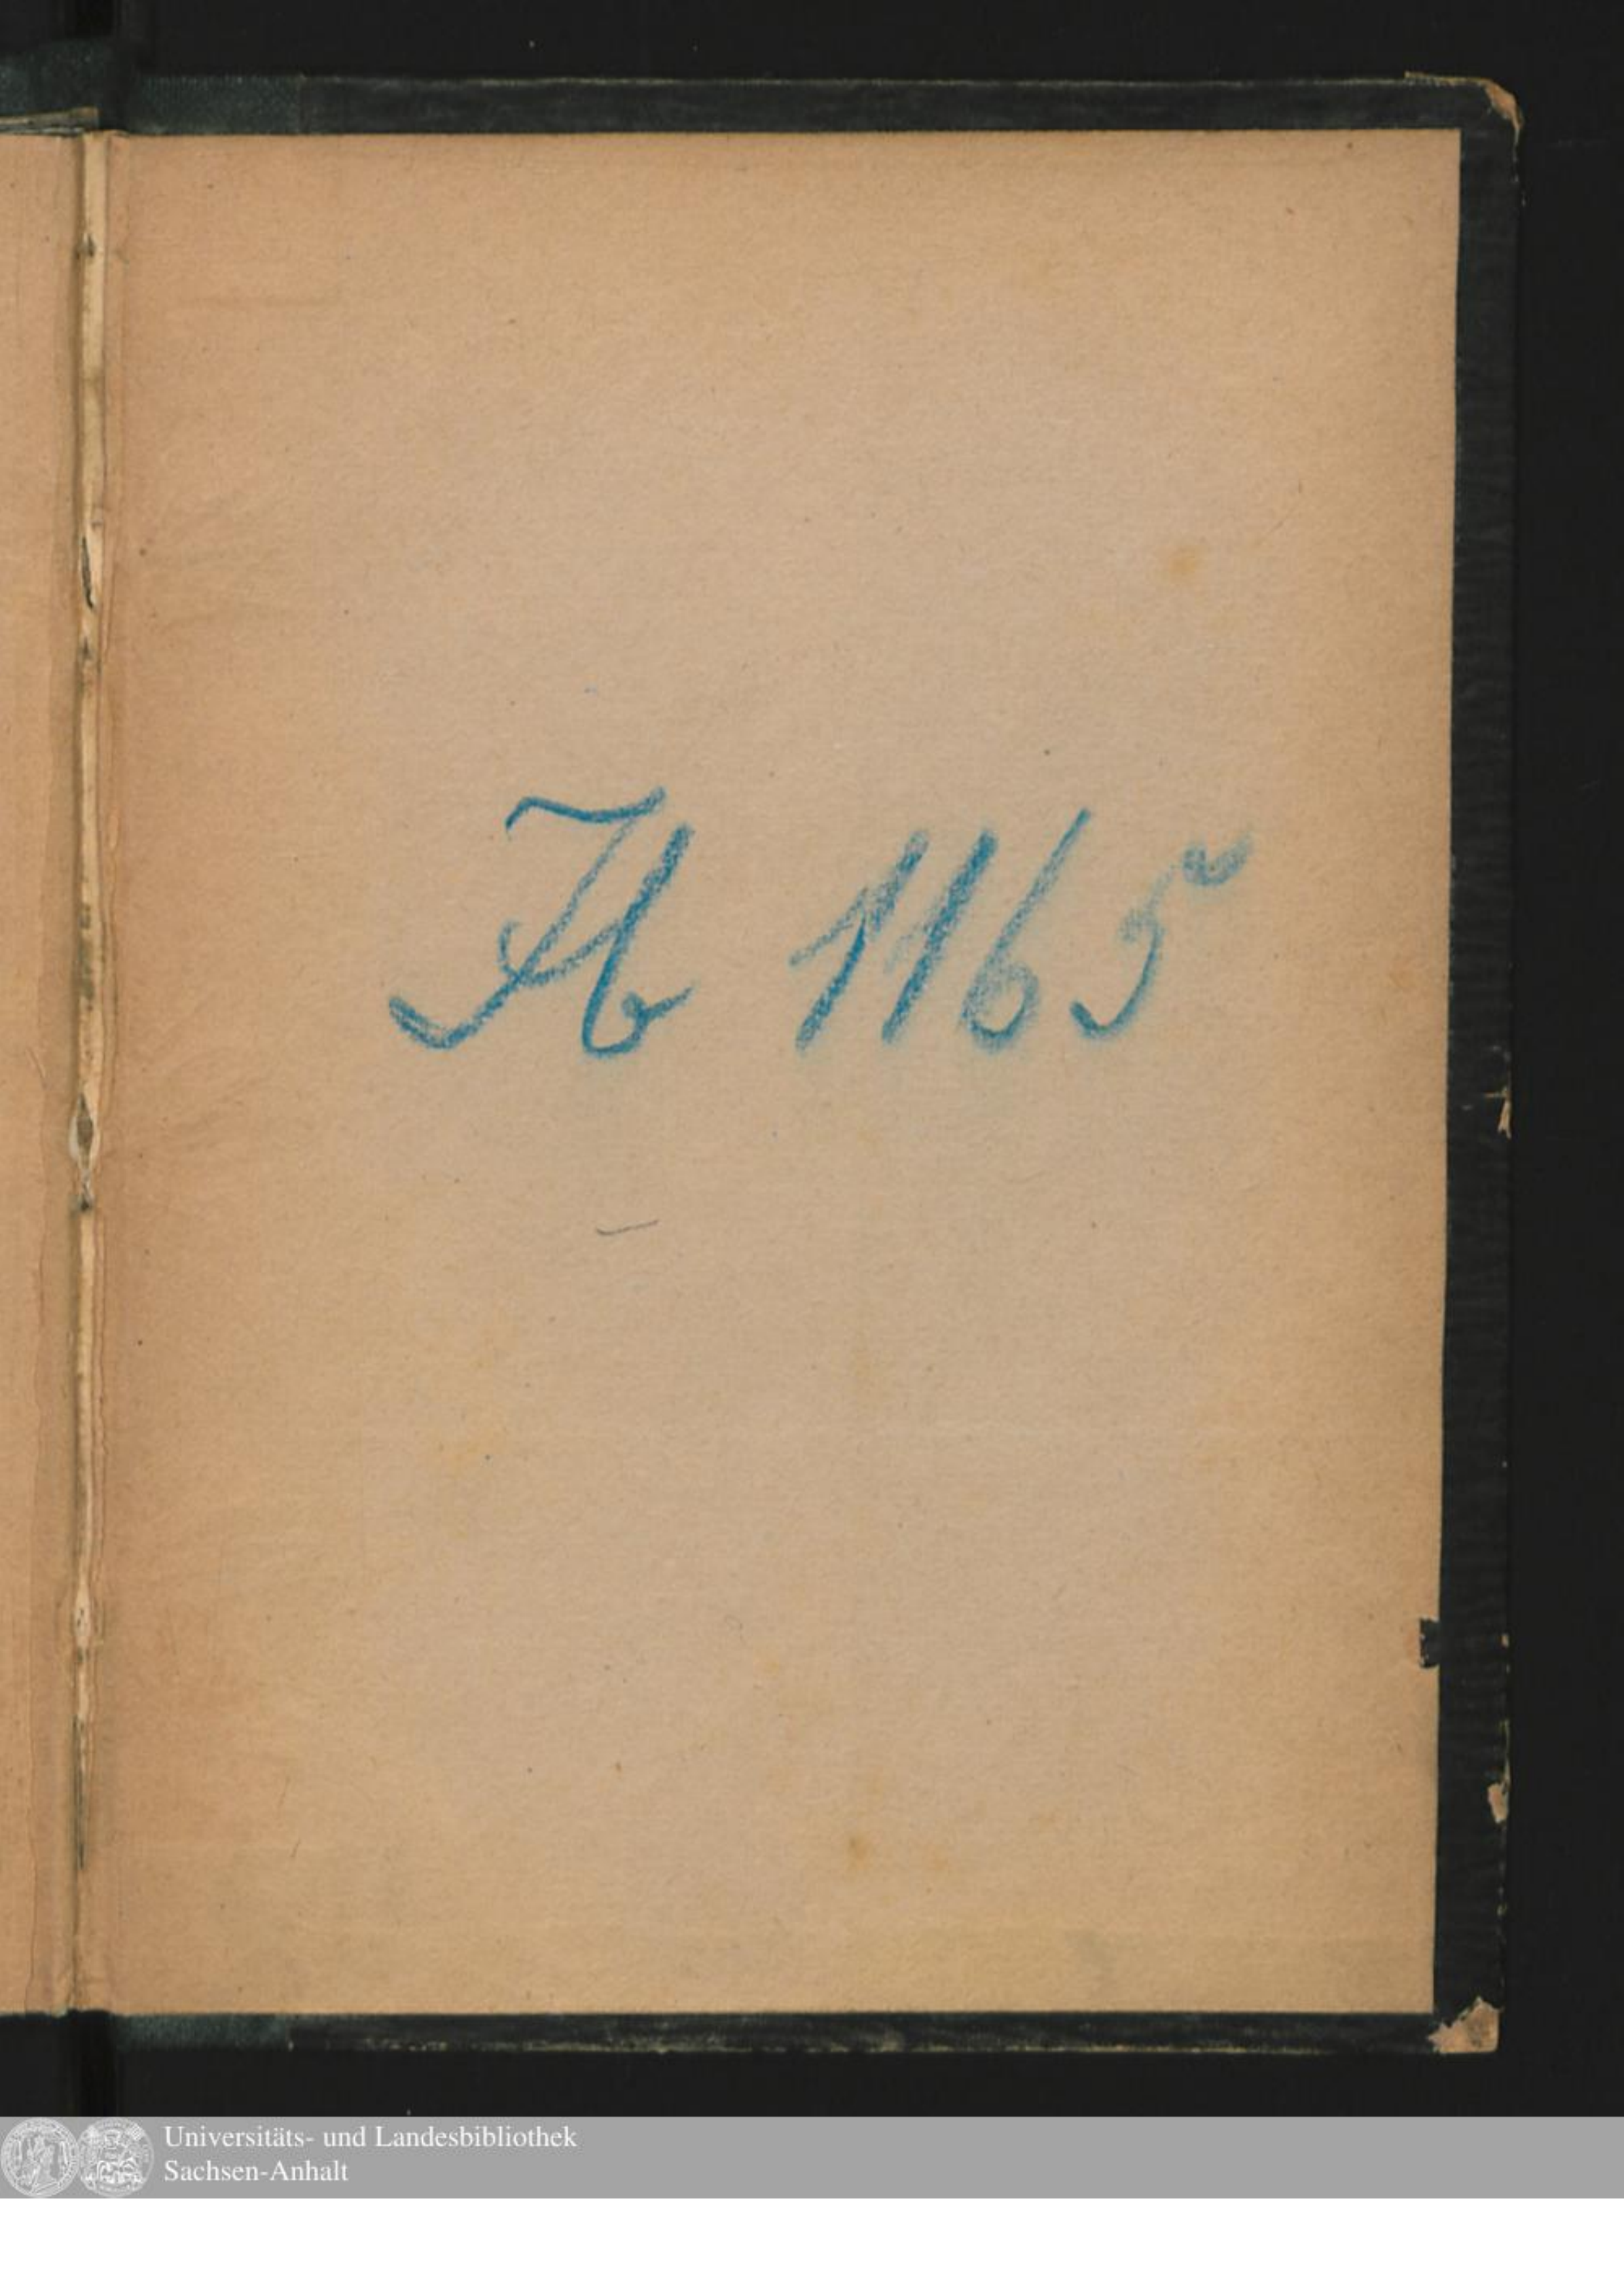 Ib 1165
Universitäts- und Landesbibliothek
Sachsen-Anhalt